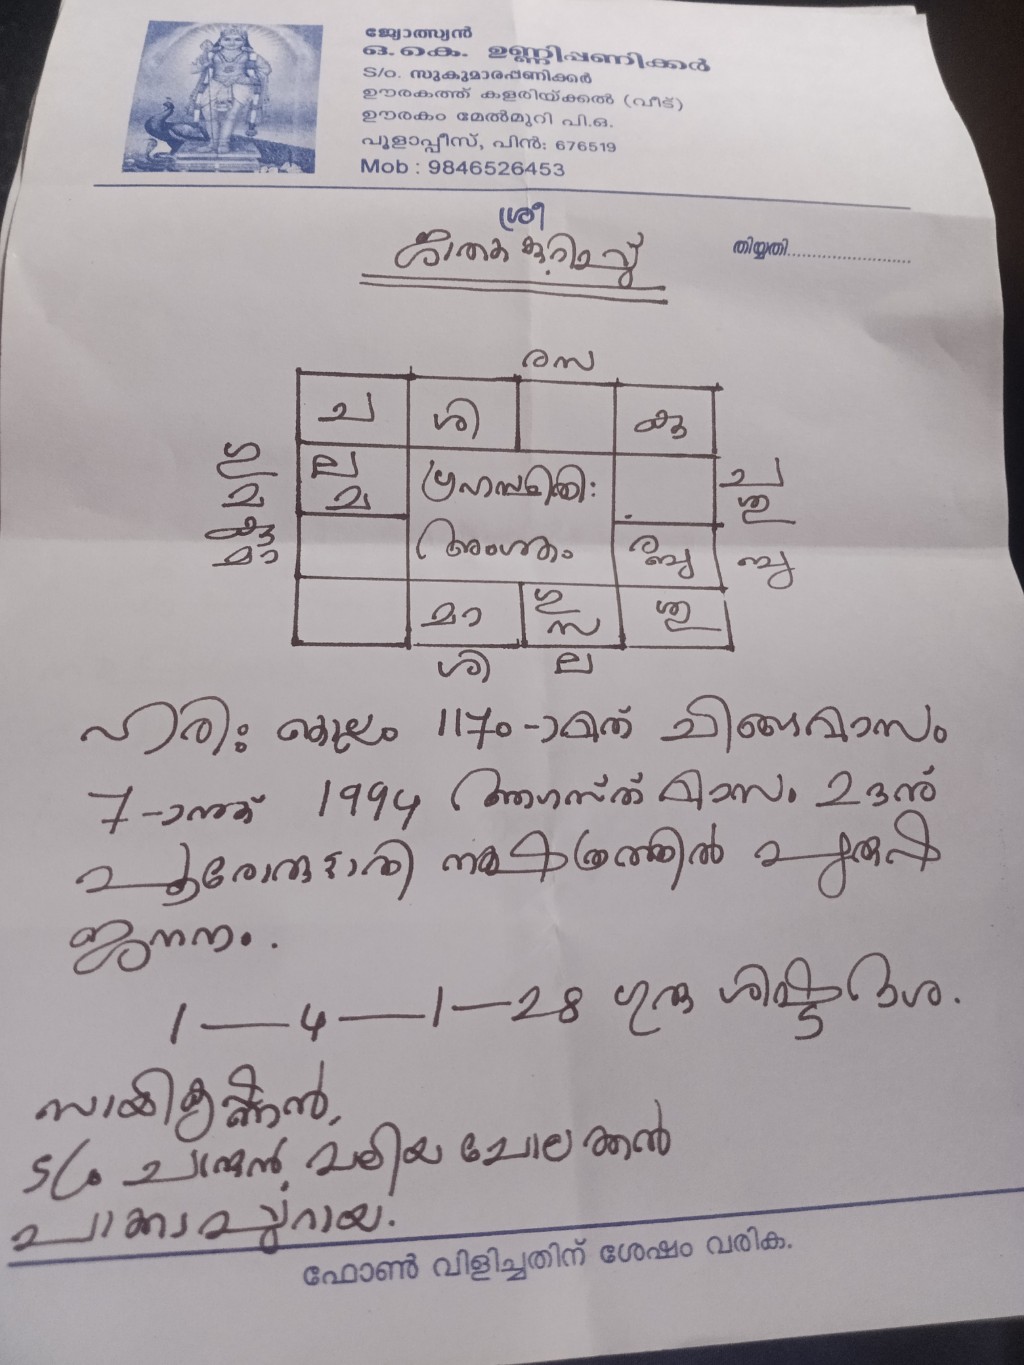 ജ്യോത്സ്യൻ
ഒ.കെ. ഉണ്ണിപ്പണിക്കർ
S/o. സുകുമാരപ്പണിക്കർ
ഊരകത്ത് കളരിയ്ക്കൽ (വീട്)
ഊരകം മേൽമുറി പി.ഒ.
പൂളാപ്പീസ്, പിൻ: 676519
Mob : 9846526453
ശ്രീ
ജാതക കുറിപ്പ്
തിയ്യതി
ര സ
ച ശി കു
ഗു ല ഗ്രഹസ്ഥിതി: ച
മ മ ശു
കു അംശകം ര ബു ബു
മാ
മാ ഗു ശു
സ
ശി ല
ഹരി: കൊല്ലം 1170-ാമത് ചിങ്ങമാസം
7-ാനുക് 1994 ആഗസ്ത് മാസം 23നു്
പൂരോരുട്ടാതി നക്ഷത്രത്തിൽ പുരുഷ
ജനനം.
1 — 4 — 1 — 28 ഗുരു ശിഷ്ട ദശ.
സായികൃഷ്ണൻ,
S/o വലിയ ചോലക്കൽ
ഫോൺ വിളിച്ചതിന് ശേഷം വരിക.